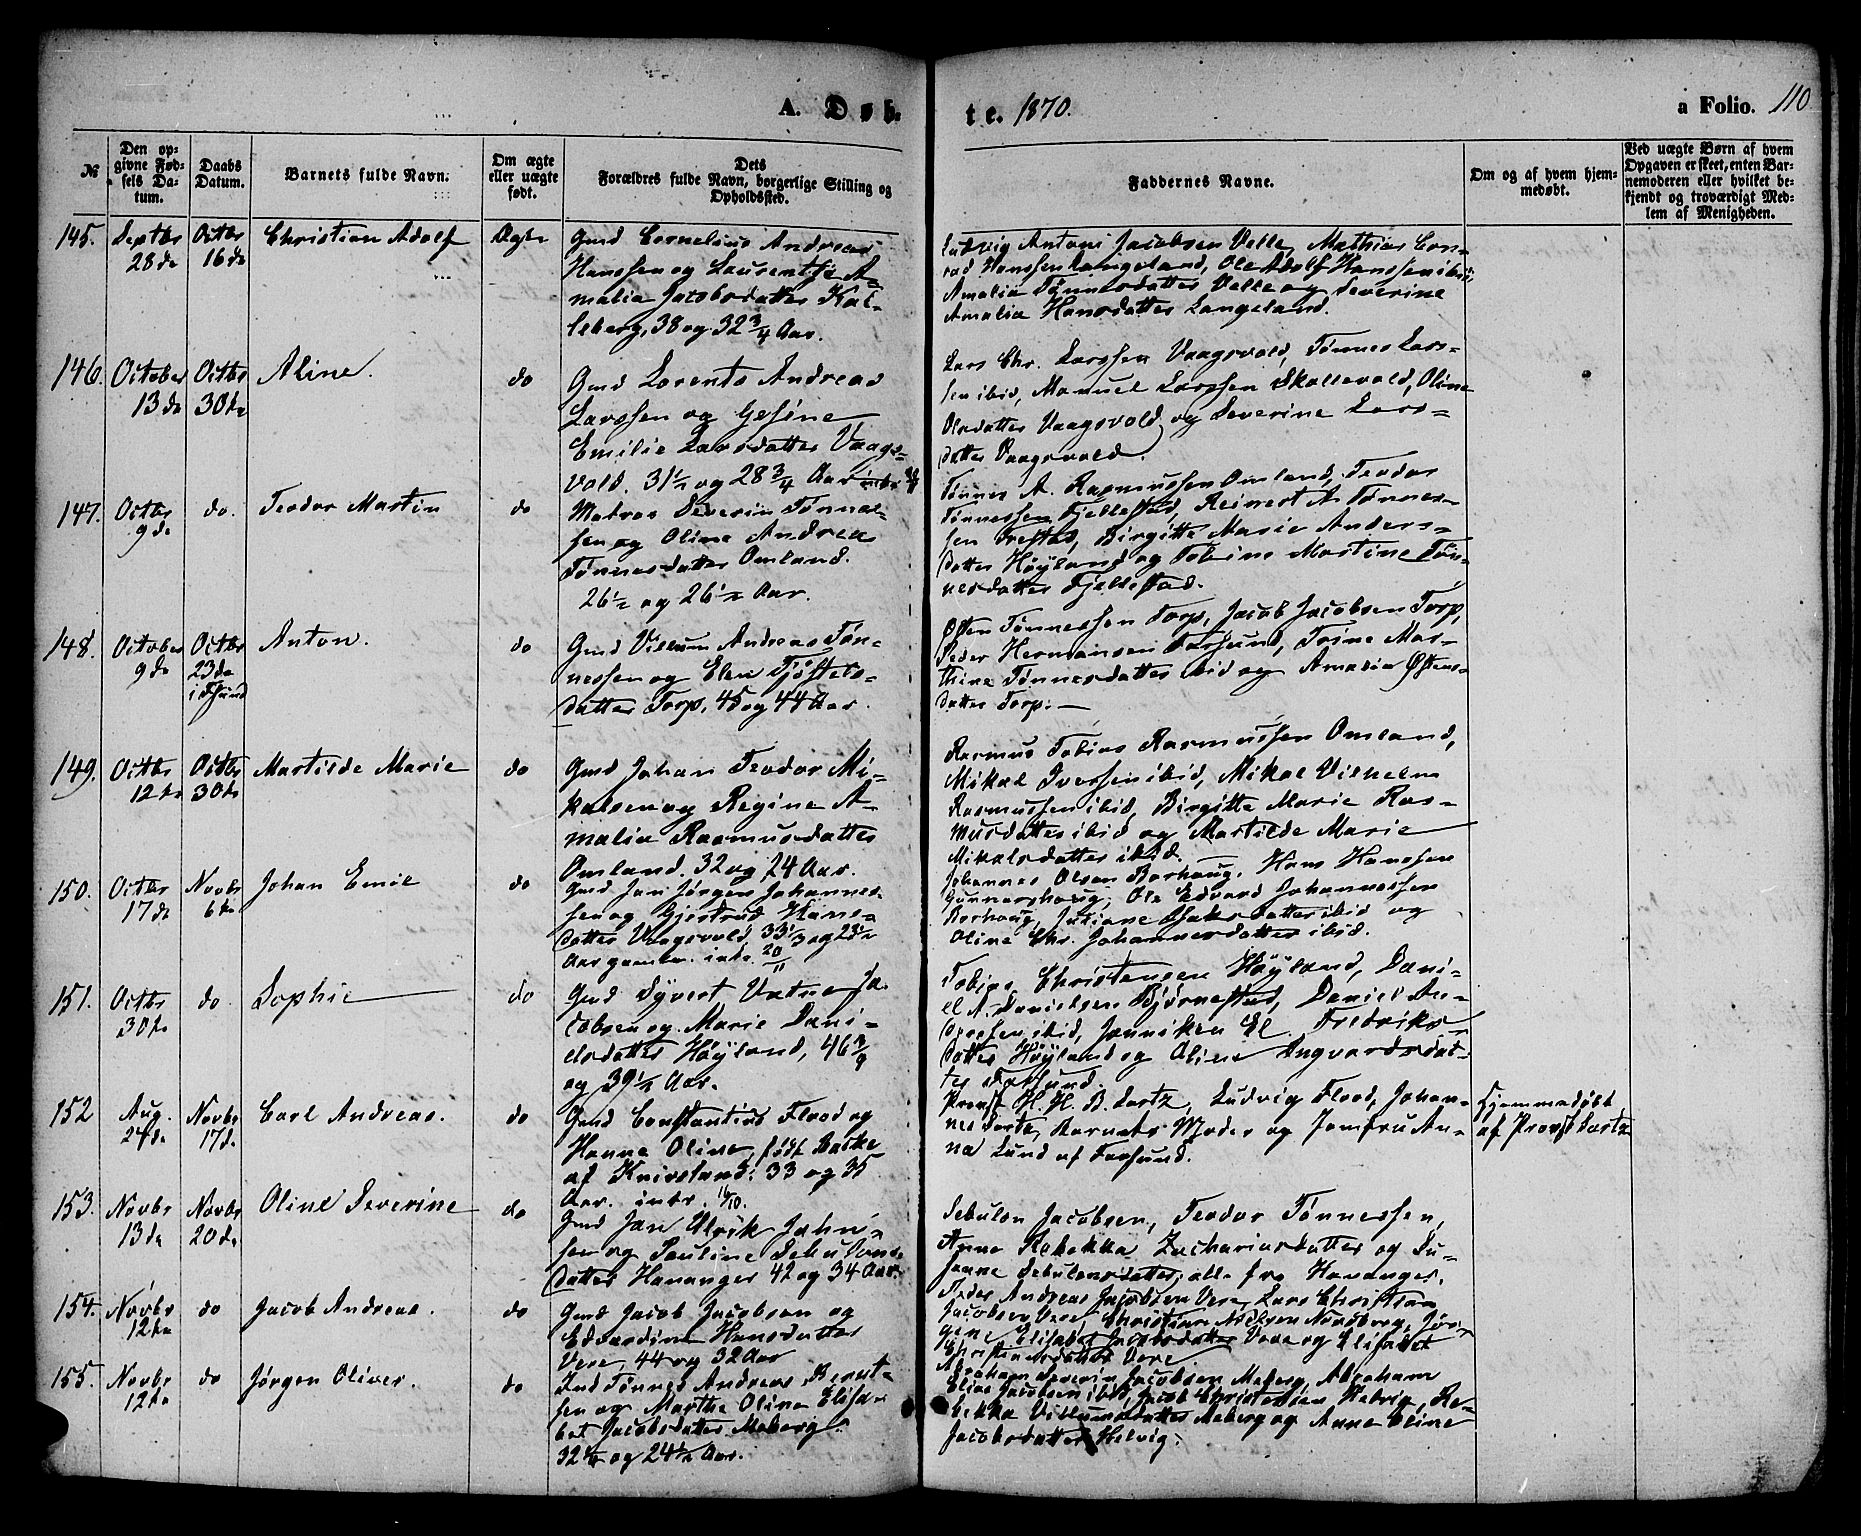 A. Døb-
te. 1870.
a Folio. 110
№
Den op-
givne Fød-
sels Da-
tum.
Daabs
Datum.
Barnets fulde Navn.
Om ægte
eller uægte
født.
Dets
Forældres fulde Navn, borgerlige Stilling og
Opholdssted.
Faddernes Navne.
Om og af hvem hjem-
medøbt.
Ved uægte Børn af hvem
Opgaven er skeet, enten Bar-
nemoderen eller hvilket be-
kjendt og troværdigt Med-
lem af Menigheden.
145.
Septbr
28de
Octbr
16de
Christian Adolf
Ægte
Gmd Cornelius Andreas
Hanssen og Laurentse A-
malia Jacobsdatter Kal-
leberg, 38 og 32 3/4 Aar.
Ludvig Antoni Jacobsen Velle, Mathias Con-
rad Hanssen Langeland, Ole Adolf Hanssen ibid,
Amalia Tønnesdatter Velle og Severine
Amalia Hansdatter Langeland.
146.
October
13de
Octbr
30te
Aline.
do
Gmd Lorents Andreas
Larssen og Gesine
Emilie Larsdatter Vaags-
vold. 31 1/2 og 28 3/4 Aar
Lars Chr. Larssen Vaagsvold, Tønnes Lars-
sen ibid, Manuel Larssen Skollevold, Oline
Olsdatter Vaagsvold og Severine Lars-
datter Vaagsvold.
147.
Octbr
9de
do.
Teodor Martin
do
Matros Severin Tønnes-
sen og Oline Andrea
Tønnesdatter Omland.
26 1/2 og 26 1/2 Aar.
Tønnes A. Rasmussen Omland, Teodor
Tønnessen Fjellestad, Reinert A. Tønnes-
sen Frestad, Birgitte Marie Anders-
datter Høyland og Tobine Martine Tøn-
nesdatter Fjellestad.
148.
October
9de
Octbr
23de
i Fsund
Anton.
do
Gmd Villum Andreas Tøn-
nessen og Elen Tjøstels-
datter Torp, 45 og 44 Aar.
Østen Tønnessen Torp, Jacob Jacobsen Torp,
Peder Hermansen Farsund, Trine Mar-
thine Tønnesdatter ibid og Amalia Østens-
datter Torp.
149.
Octbr
12te
Octbr
30te
Martilde Marie
do
Gmd Johan Teodor Mi-
kalsen og Regine A-
malia Rasmusdatter
Omland. 32 og 24 Aar.
Rasmus Tobias Rasmussen Omland,
Mikal Iversen ibid, Mikal Vilhelm
Rasmussen ibid, Birgitte Marie Ras-
musdatter ibid og Martilde Marie
Mikalsdatter ibid.
150.
Octbr
17de
Novbr
6te
Johan Emil
do
Gmd Jan Jørgen Johannes-
sen og Gjertrud Hans-
datter Vaagsvold, 33 1/3 og 28 1/2
Aar gamle. intr. 20/11
Johannes Olsen Borhaug, Hans Hanssen
Gunnarshoug, Ole Edvard Johannessen
Borhaug, Juliane Isaksdatter ibid og
Oline Chr. Johannesdatter ibid.
151.
Octbr
30te
do
Sophie
do
Gmd Syvert Vatne Ja-
cobsen og Marie Dani-
elsdatter Høyland, 46
og 39 1/2 Aar.
Tobias Christensen Høyland, Dani-
el A. Danielsen Bjørnestad, Daniel An-
dreassen ibid, Janniken El. Fredriks-
datter Høyland og Oline Ingvardsdat-
ter Farsund.
152
Aug.
24de
Novbr
17de
Carl Andreas.
do
Gmd Constantius Flood og
Hanne Oline, født Bache
af Knivsland: 33 og 35
Aar. intr. 16/10.
Provst H. H. B. Sartz, Ludvig Flood, Johan-
nes Sartz, Barnets Moder og Jomfru An-
na Lund af Farsund.
Hjemmedøbt
af Provst Sartz
153.
Novbr
13de
Novbr
20de
Oline Severine
do
Gmd Jan Ulrik John-
sen og Pauline Sebulons-
datter Hananger 42 og 34 Aar.
Sebulon Jacobsen, Teodor Tønnessen,
Anne Rebekka Zachariasdatter og Su-
sanne Sebulonsdatter, alle fra Hananger.
154.
Novbr
12te
do
Jacob Andreas.
do
Gmd Jacob Jacobsen og
Edvardine Hansdatter
Vere, 44 og 32 Aar
Peder Andreas Jacobsen Vere, Lars Christian
Jacobsen Vere, Christian Nielsen Nordberg, Jør-
gine Elisabet Jacobsdatter Vere og Elisabet
Christiansdatter Vere.
155.
Novbr
12te
do
Jørgen Oliver.
do
Ind Tønnes Andreas Bernt-
sen og Marthe Oline Elisa-
bet Jacobsdatter Meberg.
32 og 24 1/2 Aar.
Abraham Severin Jacobsen Meberg, Abraham
Elias Jacobsen ibid, Jacob Christensen Helvig, Re-
bekka Villumsdatter Meberg og Anne Eline
Jacobsdatter Helvig.